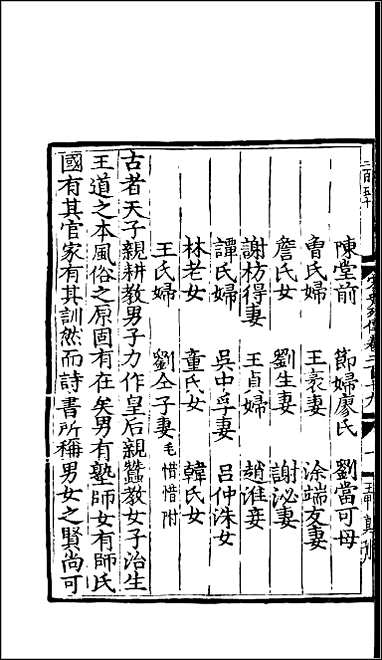 陳堂前　節婦廖氏　劉當可母
曾氏婦　王袤妻　涂端友妻
詹氏女　劉生妻　謝泌妻
謝枋得妻　王貞婦　趙淮妾
譚氏婦　吳中孚妻　呂仲洙女
林老女　童氏女　韓氏女
王氏婦　劉仝子妻　毛惜惜附
古者天子親耕教男子力作皇后親蠶教女子治生
王道之本風俗之原固有在矣男有塾師女有師氏
國有其官家有其訓然而詩書所稱男女之賢尚可